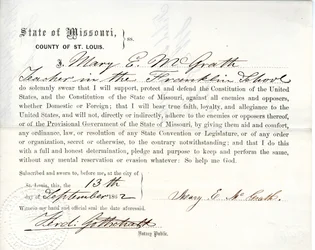 State of Missouri,
COUNTY OF ST. LOUIS.
} ss.
I, Mary E. McGrath
Teacher in the Franklin School
do solemnly swear that I will support, protect and defend the Constitution of the United
States, and the Constitution of the State of Missouri, against all enemies and opposers,
whether Domestic or Foreign; that I will bear true faith, loyalty, and allegiance to the
United States, and will not, directly or indirectly, adhere to the enemies or opposers thereof,
or of the Provisional Government of the State of Missouri, by giving them aid and comfort,
any ordinance, law, or resolution of any State Convention or Legislature, or of any order
or organization, secret or otherwise, to the contrary notwithstanding; and that I do this
with a full and honest determination, pledge and purpose to keep and perform the same,
without any mental reservation or evasion whatever: So help me God.
Subscribed and sworn to, before me, at the city of
St. Louis, this, the 13th
day of September 2
Mary E. McGrath.
Witness my hand and official seal the date aforesaid.
Ferd.
Notary Public.